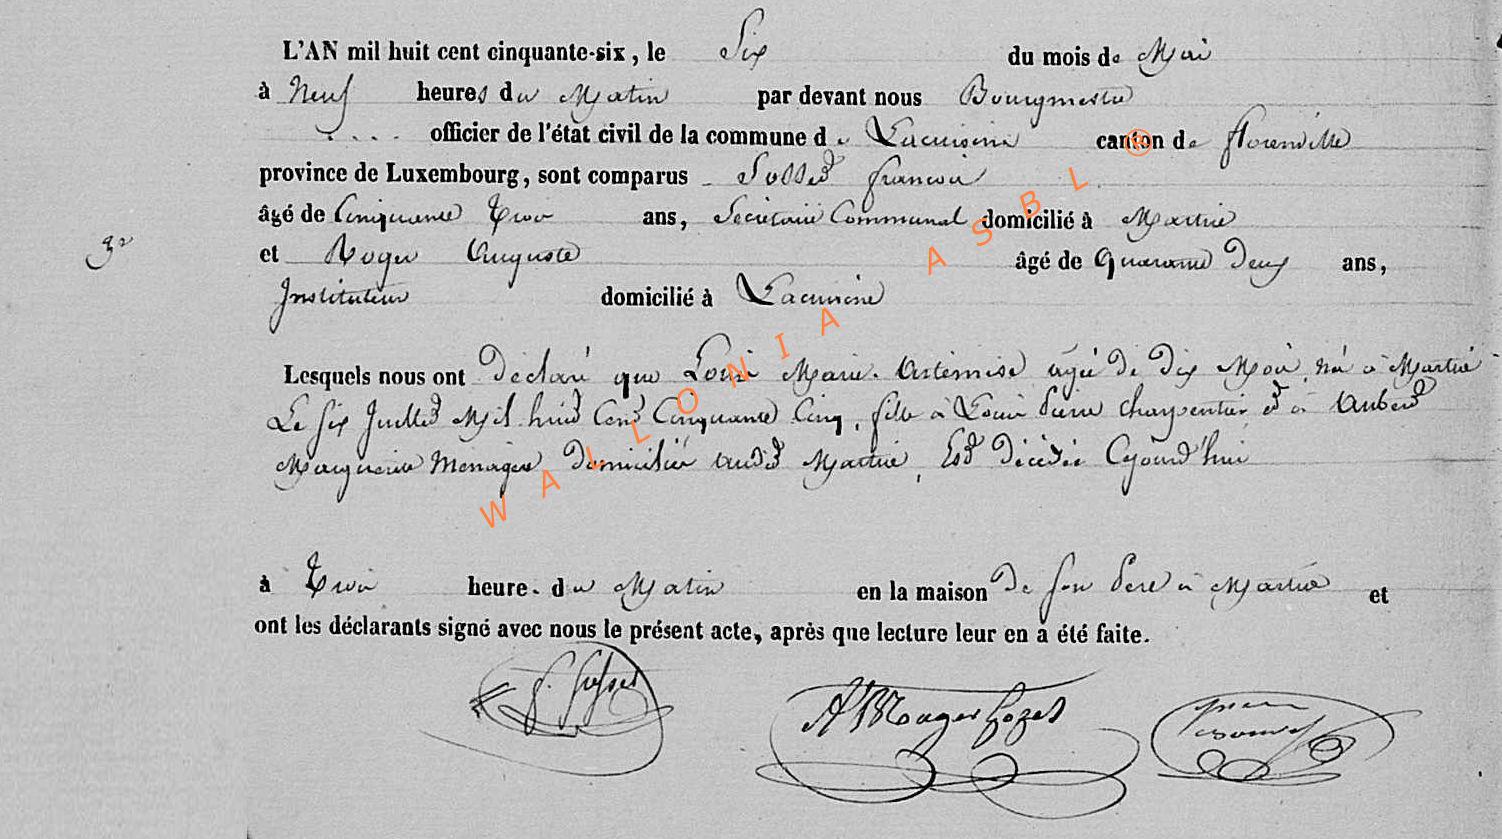 L'AN mil huit cent cinquante-six, le Six du mois de Mai
à Neuf heures du Matin par devant nous Bourgmestre
officier de l'état civil de la commune de Lacuisine canton de florenville
province de Luxembourg, sont comparus Sosset francois
âgé de Cinquante Trois ans, Secrétaire Communal domicilié à Martué
3e
et Roger Auguste âgé de quarante Deux ans,
Instituteur domicilié à Lacuisine
Lesquels nous ont Déclaré que Louis Marie Artémise agée de Dix Mois, née à Martué
Le Six Juillet Mil huit Cent Cinquante Cinq, fille à Louis Pierre charpentier et à Aubert
Marguerite Menagère Domiciliés audit Martué, Est Décédée Cejourd'hui
à Trois heure. du Matin en la maison De son Père à Martué et
ont les déclarants signé avec nous le présent acte, après que lecture leur en a été faite.
WALLONIA ASBL ®